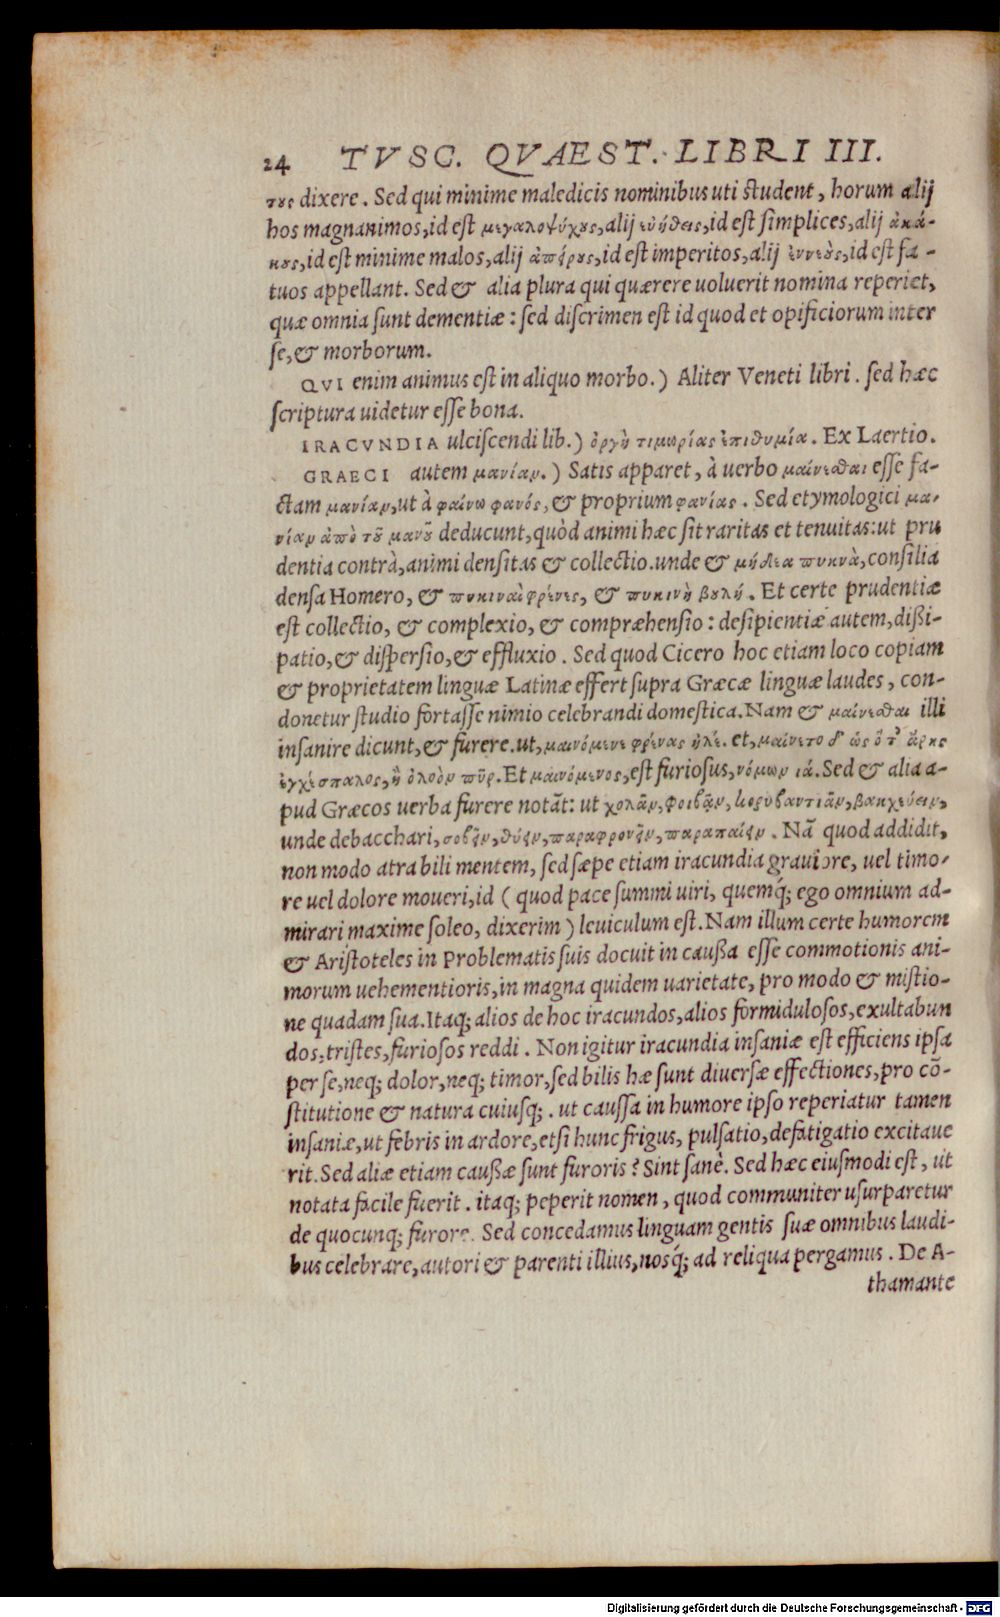 24 TVSC. QVAEST. LIBRI III.
τους dixere. Sed qui minime maledicis nominibus uti student, horum alij
hos magnanimos, id est μεγαλοψύχους, alij εὐήθεις, id est simplices, alij ἀκά-
κους, id est minime malos, alij ἀπείρους, id est imperitos, alij ἐννεοὺς, id est fa-
tuos appellant. Sed & alia plura qui quærere uoluerit nomina reperiet,
quæ omnia sunt dementiæ: sed discrimen est id quod et opificiorum inter
se, & morborum.
QVI enim animus est in aliquo morbo.) Aliter Veneti libri. sed hæc
scriptura uidetur esse bona.
IRACVNDIA ulciscendi lib.) ὀργὴ τιμωρίας ἐπιθυμία. Ex Laertio.
GRAECI autem μανίαν.) Satis apparet, à uerbo μαίνεσθαι esse fa-
ctam μανίαν, ut à φαίνω φανός, & proprium φανίας. Sed etymologici μα-
νίαν ἀπὸ τοῦ μανοῦ deducunt, quòd animi hæc sit raritas et tenuitas: ut pru
dentia contrà, animi densitas & collectio. unde & μήδεα πυκνὰ, consilia
densa Homero, & πυκιναὶ φρένες, & πυκινὴ βουλή. Et certe prudentiæ
est collectio, & complexio, & compræhensio: desipientiæ autem, dißi-
patio, & dispersio, & effluxio. Sed quod Cicero hoc etiam loco copiam
& proprietatem linguæ Latinæ effert supra Græcæ linguæ laudes, con-
donetur studio fortasse nimio celebrandi domestica. Nam & μαίνεσθαι illi
insanire dicunt, & furere. ut, μαινόμενε φρένας ἠλέ. et, μαίνετο δ' ὡς ὅτ' ἄρης
ἐγχέσπαλος, ἢ ὀλοὸν πῦρ. Et μαινόμενος, est furiosus, νόμων ιά. Sed & alia a-
pud Græcos uerba furere notãt: ut χολᾶν, φοιβᾷν, κορυβαντιᾶν, βακχεύειν,
unde debacchari, σοβεῖν, θύειν, παραφρονεῖν, παραπαίειν. Nã quod addidit,
non modo atra bili mentem, sed sæpe etiam iracundia graviore, uel timo-
re uel dolore moueri, id ( quod pace summi uiri, quemq́; ego omnium ad-
mirari maxime soleo, dixerim ) leviculum est. Nam illum certe humorem
& Aristoteles in Problematis suis docuit in caußa esse commotionis ani-
morum uehementioris, in magna quidem uarietate, pro modo & mistio-
ne quadam sua. Itaq; alios de hoc iracundos, alios formidulosos, exultabun
dos, tristes, furiosos reddi. Non igitur iracundia insaniæ est efficiens ipsa
per se, neq; dolor, neq; timor, sed bilis hæ sunt diuersæ effectiones, pro cõ-
stitutione & natura cuiusq;. ut caussa in humore ipso reperiatur tamen
insaniæ, ut febris in ardore, etsi hunc frigus, pulsatio, defatigatio excitaue
rit. Sed aliæ etiam caußæ sunt furoris? Sint sanè. Sed hæc eiusmodi est, ut
notata facile fuerit. itaq; peperit nomen, quod communiter usurparetur
de quocunq; furore. Sed concedamus linguam gentis suæ omnibus laudi-
bus celebrare, autori & parenti illius, nosq́; ad reliqua pergamus. De A-
thamante
Digitalisierung gefördert durch die Deutsche Forschungsgemeinschaft - DFG